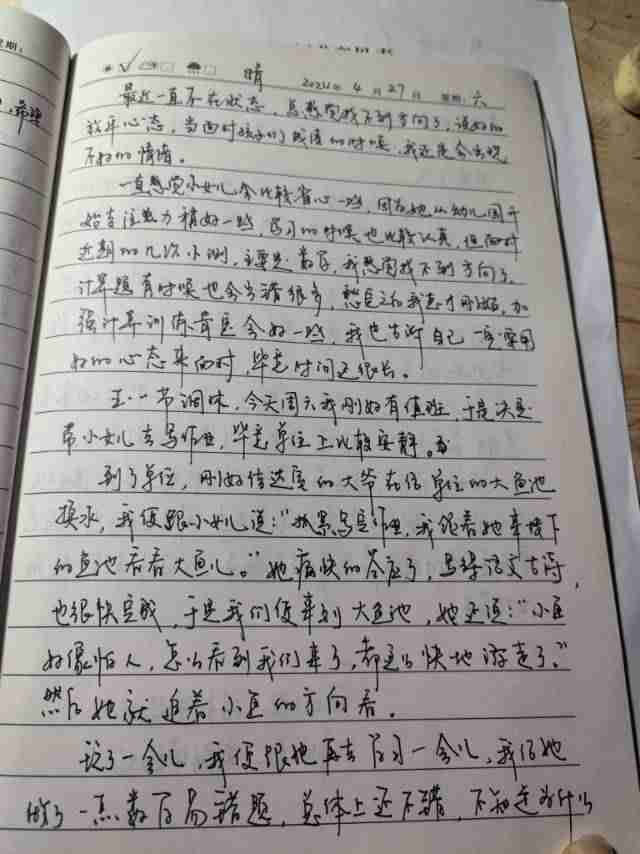 晴 2024年4月27日 星期:六
最近一直不在状态,总感觉找不到方向了,说好的
找平心态,当面对孩子的成绩的时候,我还是会出现
不好的情绪。
一直感觉小女儿会比较省心一些,因为她从幼儿园开
始专注力稍好一些,学习的时候也比较认真,但面对
近期的几次小测,主要是数学,我感觉找不到方向了,
计算题有时候也会出错很多,
强计算训练肯定会好一些,我也告诉自己一定要用
好的心态来面对,毕竟时间还很长。
五一节调休,今天周六我刚好有值班,于是决定
带小女儿去写作业,毕竟单位上比较安静。
到了单位,刚好传达室的大爷在给单位的大鱼池
换水,我便跟小女儿说:“抓紧写完作业,我领着她来楼下
的鱼池看看大鱼儿。”她痛快的答应了,写绿语文古诗,
也很快完成,于是我们便来到大鱼池,她还说:“小鱼
好像怕人,怎么看到我们来了,都这么快地游走了。”
然后她就追着小鱼的方向看。
玩了一会儿,我便跟她再去学习一会儿,我给她
做了一点数学易错题,总体上还不错,不知道为什么